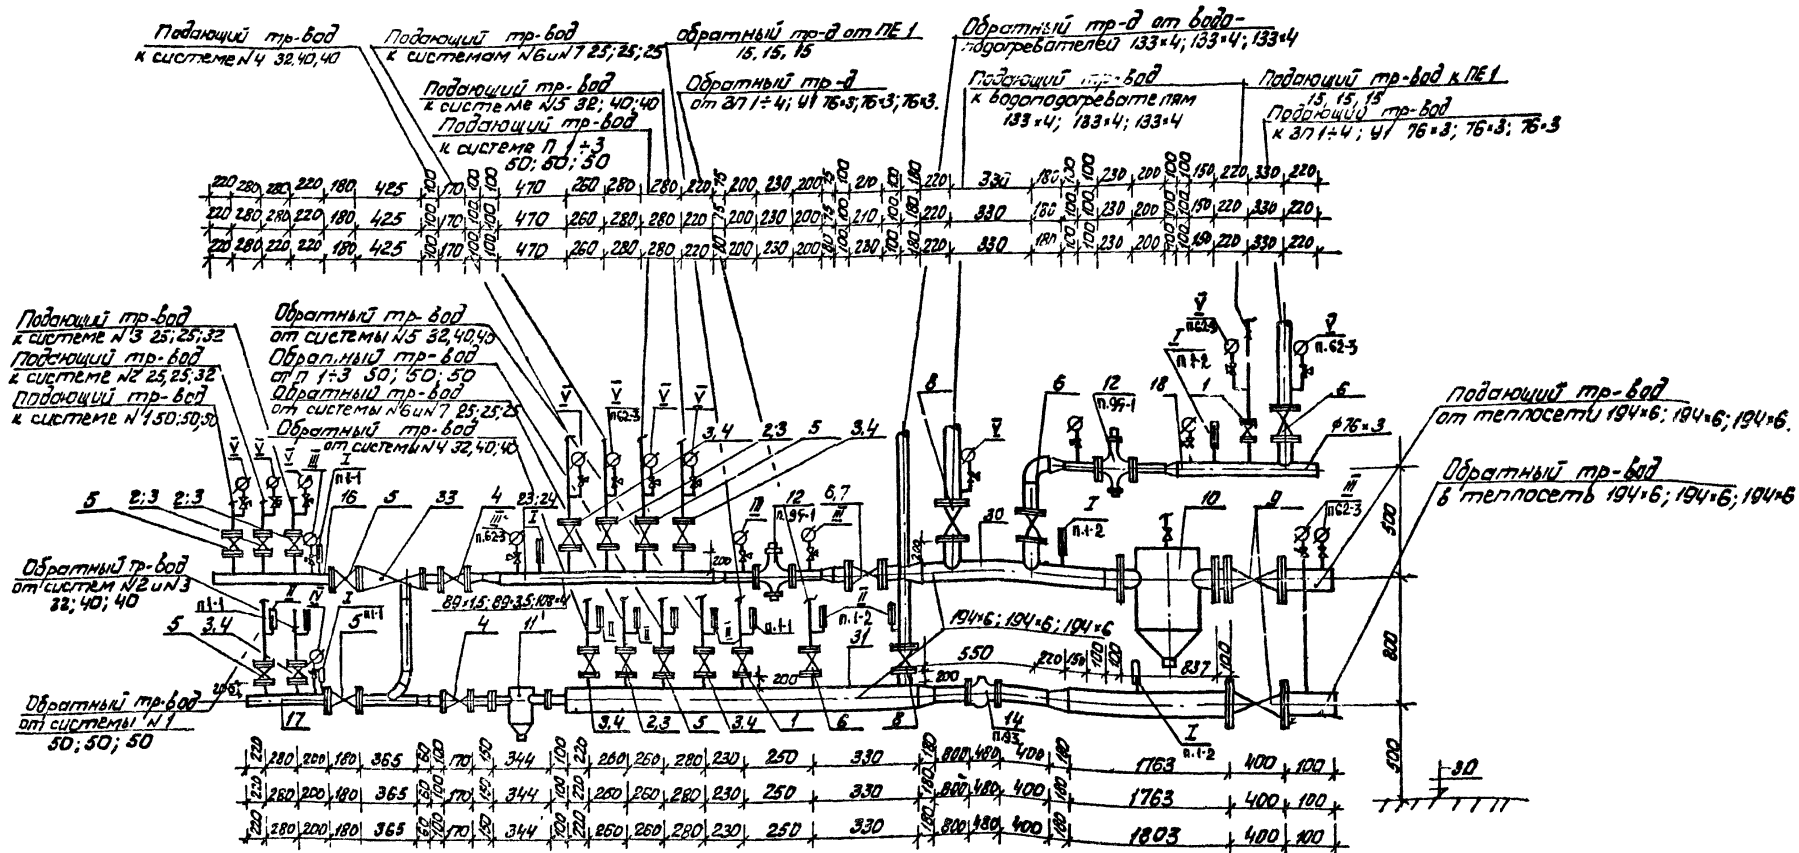 Подающий тр-вод
к системе N4 32,40,40
Подающий тр-вод
к системам N6 и N7 25;25;25
Подающий тр-вод
к системе N5 32; 40; 40
Подающий тр-вод
к системе П 1÷3
50; 50; 50
обратный тр-д от ПЕ 1
15, 15, 15
Обратный тр-д
от ЗП 1÷4; У1 76×3; 76×3; 76×3.
Обратный тр-д от водо-
подогревателей 133×4; 133×4; 133×4
Подающий тр-вод
к водоподогревателям
133×4; 133×4; 133×4
Подающий тр-вод к ПЕ 1
15, 15, 15
Подающий тр-вод
к ЗП 1÷4; У1 76×3; 76×3; 76×3
220 280 280 220 180 425 100 170 100 100 470 260 280 280 220 75 200 230 200 75 100 210 100 180 220 330 180 100 100 230 200 100 100 150 220 330 220
220 280 280 220 180 425 100 170 100 100 470 260 280 280 220 75 200 230 200 75 100 210 100 180 220 330 180 100 100 230 200 100 100 150 220 330 220
220 280 220 220 180 425 100 170 100 100 470 260 280 280 220 80 200 230 200 80 100 230 100 180 220 330 180 100 100 230 200 100 100 150 220 330 220
Подающий тр-вод
к системе N3 25;25;32
Подающий тр-вод
к системе N2 25,25,32
Подающий тр-вод
к системе N1 50;50;50
Обратный тр-вод
от системы N5 32,40,40
Обратный тр-вод
от П 1÷3 50; 50; 50
Обратный тр-вод
от системы N6 и N7 25;25;25
Обратный тр-вод
от системы N4 32,40,40
V V V III I
п.1-1
5 2;3 2;3 16 5 33 4 23;24
III
п.62-3
I
V V V V
п.62-3
3,4 2;3 5 3,4
III 12
п.99-1
6,7
III
8 V 6 12
п.99-1
18
I
п.1-2
1
V
п.62-3
V
п.62-3
6
ф76×3
Подающий тр-вод
от теплосети 194×6; 194×6; 194×6.
Обратный тр-вод
в теплосеть 194×6; 194×6; 194×6
30
I
п.1-2
10 9
III
п.62-3
200 200
500
800
500
30
Обратный тр-вод
от систем N2 и N3
32; 40; 40
п.1-1
II IV I
5 3,4 5
п.1-1
4 11
89×3.5; 89×3.5; 108×4
II II II
п.1-1
II
п.1-2
31
194×6; 194×6; 194×6
550 220 150 100 100 837 100
200 200
Обратный тр-вод
от системы N1
50; 50; 50
17 3,4 2,3 5 3,4 1 6 8 14
п.93
I
п.1-2
220 280 200 180 365 60 100 170 150 344 100 220 260 260 280 230 250 330 180 800 480 400 180 1763 400 100
220 260 200 180 365 60 100 170 150 344 100 220 260 260 280 230 250 330 180 800 480 400 180 1763 400 100
220 280 200 180 365 60 100 170 150 344 100 220 260 260 280 230 250 330 180 800 480 400 180 1803 400 100